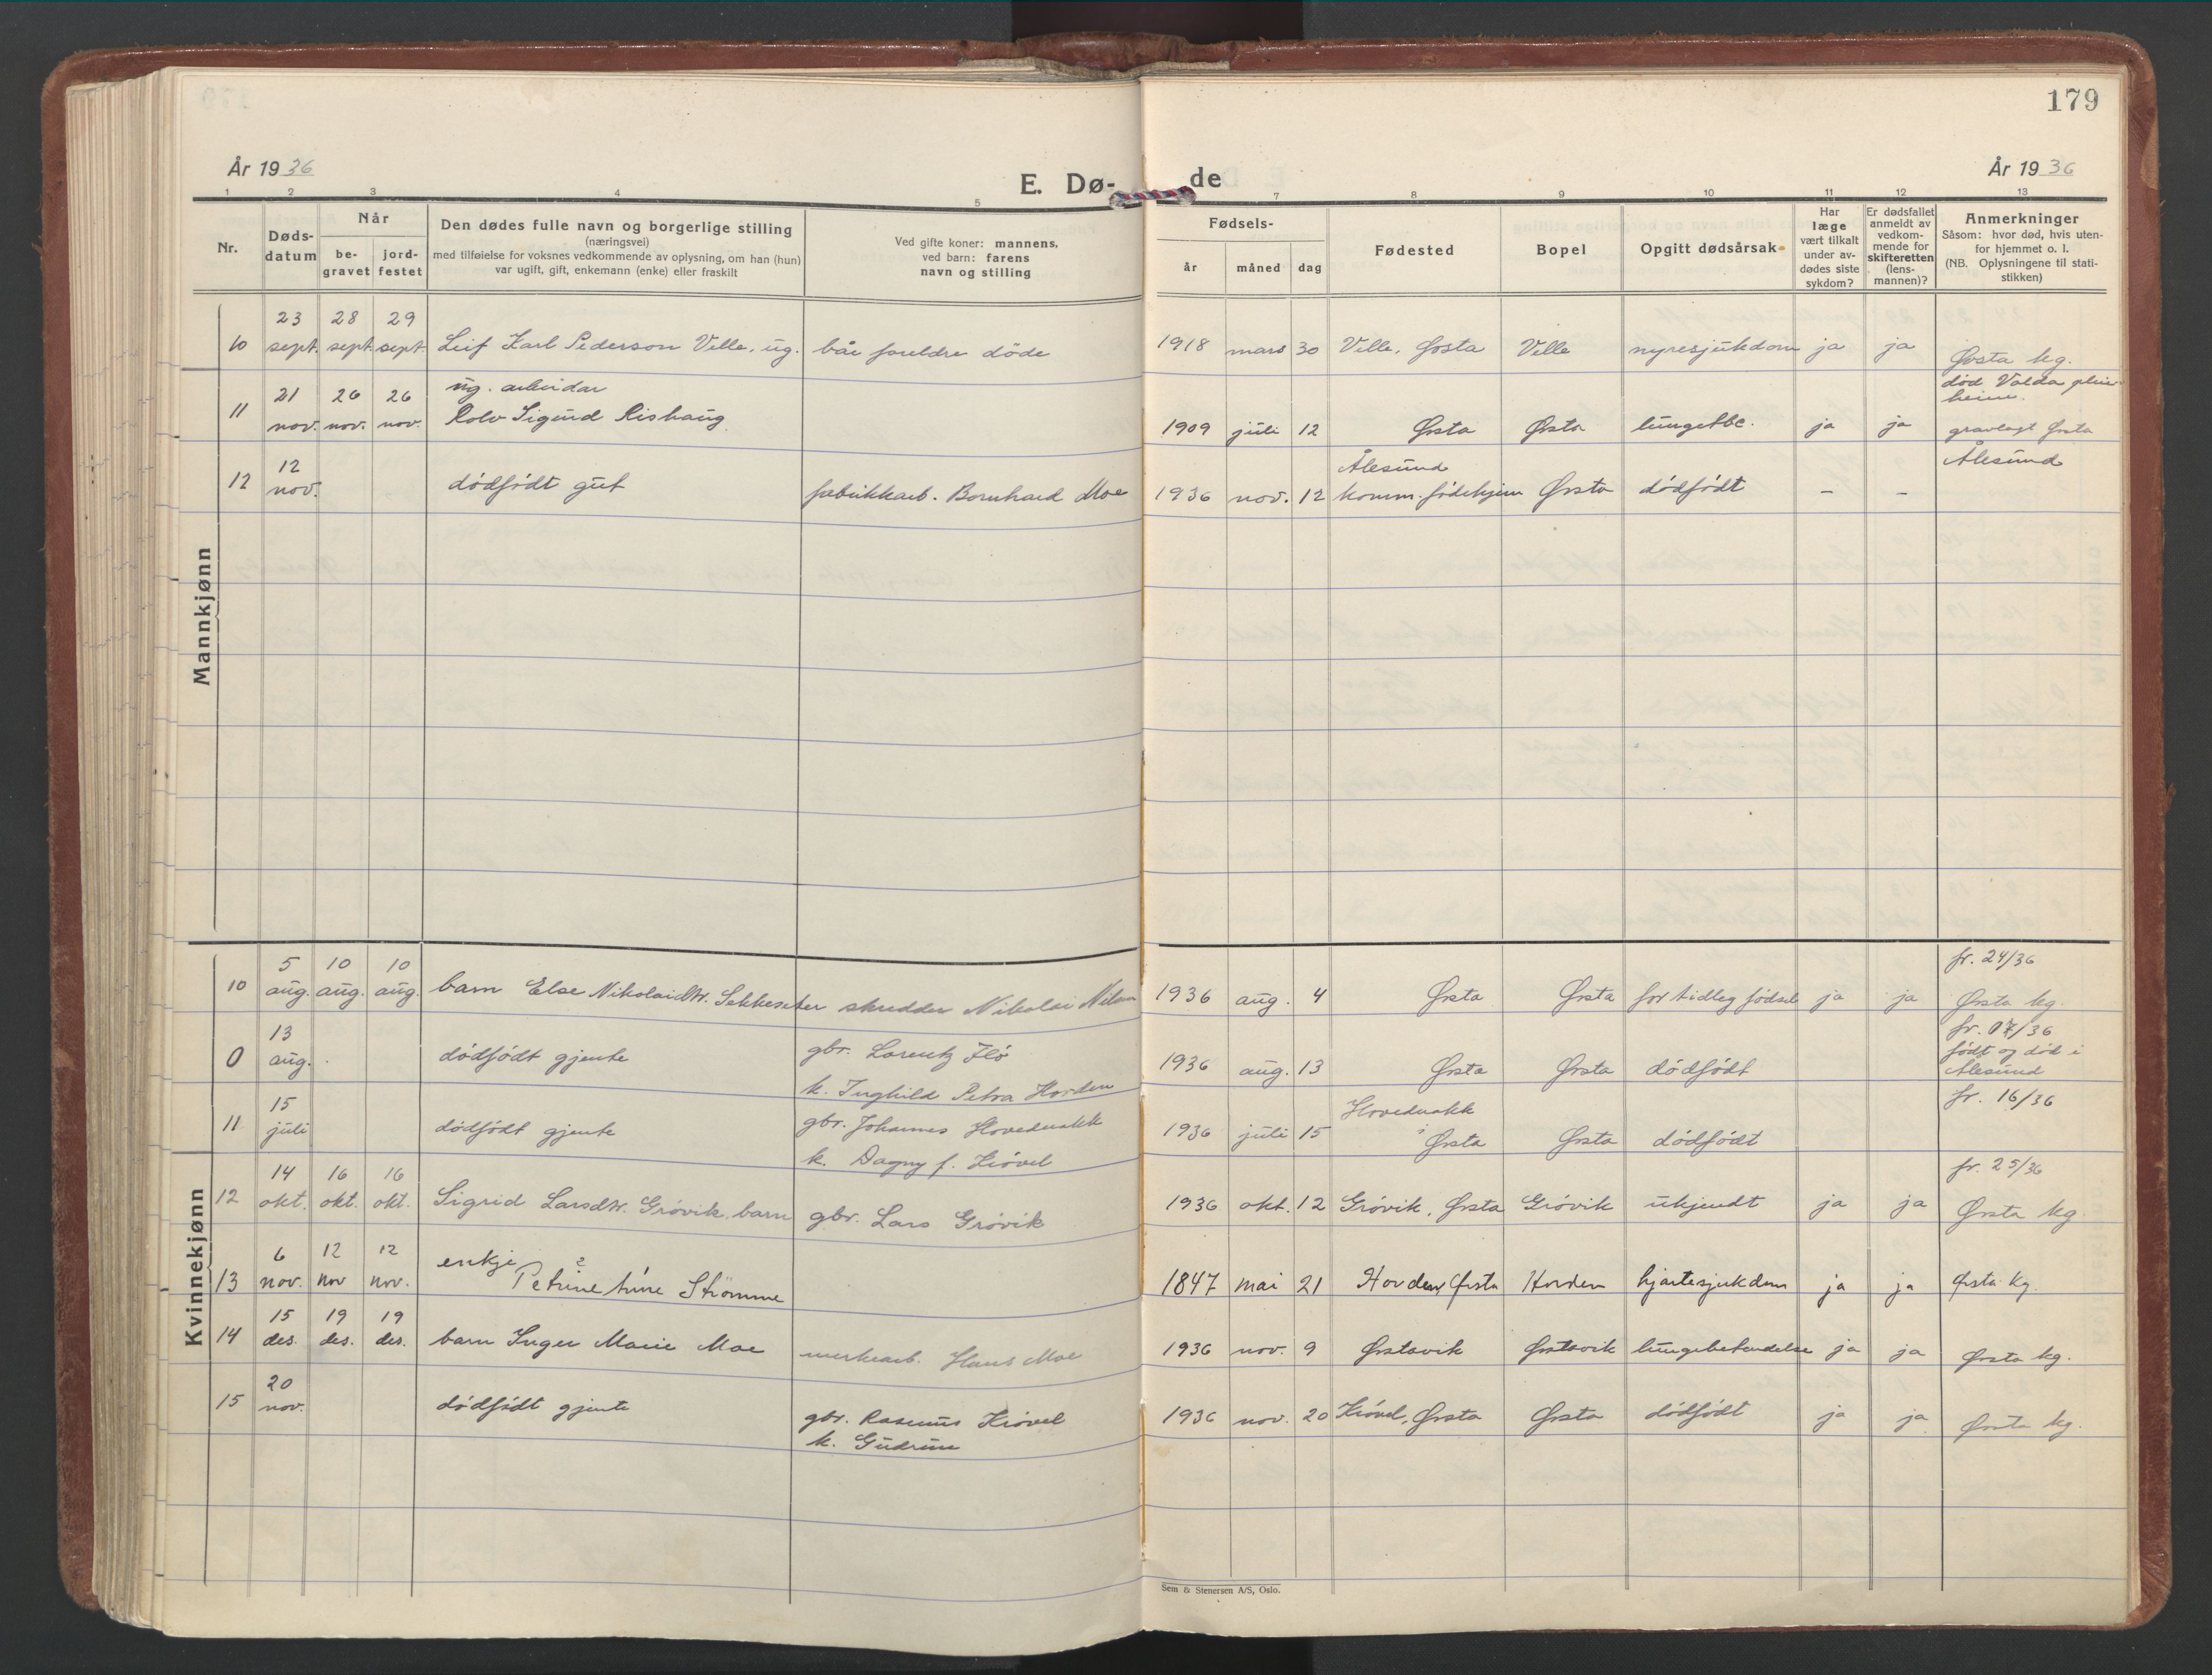 179
År 1936
E. Dø-
de
År 1936
1 2 3 4 5 7 8 9 10 11 12 13
Nr.
Døds-
datum
Når
be-
gravet
jord-
festet
Den dødes fulle navn og borgerlige stilling
(næringsvei)
med tilføielse for voksnes vedkommende av oplysning, om han (hun)
var ugift, gift, enkemann (enke) eller fraskilt
Ved gifte koner: mannens,
ved barn: farens
navn og stilling
Fødsels-
år måned dag
Fødested
Bopel
Opgitt dødsårsak
Har
læge
vært tilkalt
under av-
dødes siste
sykdom?
Er dødsfallet
anmeldt av
vedkom-
mende for
skifteretten
(lens-
mannen)?
Anmerkninger
Såsom: hvor død, hvis uten-
for hjemmet o. l.
(NB. Oplysningene til stati-
stikken)
Mannkjønn
23 28 29
10 sept. sept. sept. Leif Karl Pederson Velle, ug. båe foreldre döde 1918 mars 30 Velle, Ørsta Velle nyresjukdom ja ja Ørsta kg.
ug. arbeidar
død Volda
heim.
21 26 26
11 nov. nov. nov. Rolv Sigurd Rishaug 1909 juli 12 Ørsta Ørsta lungetbc. ja ja gravlagt Ørsta
12 Ålesund Ålesund
12 nov. dødfødt gut fabrikkarb. Bernhard Moe 1936 nov. 12 komm. fødehjem Ørsta dødfødt – –
Kvinnekjønn
5 10 10 fr. 24/36
10 aug. aug. aug. barn Else Nikolaidtr. Sekkeseter skredder Nikolai 1936 aug. 4 Ørsta Ørsta for tidleg fødsel ja ja Ørsta kg.
13 fr. 07/36
0 aug. dødfødt gjente gbr. Lorentz Flö 1936 aug. 13 Ørsta Ørsta dødfødt født og död i
Ålesund
k. Inghild Petra Horden
15 Hovedvakk fr. 16/36
11 juli dødfødt gjente gbr. Johannes Hovedvakk 1936 juli 15 i Ørsta Ørsta dødfødt
k. Dagny f. Krövel
14 16 16 fr. 25/36
12 okt. okt. okt. Sigrid Larsdtr. Grövik, barn gbr. Lars Grövik 1936 okt. 12 Grövik, Ørsta Grövik ukjendt ja ja Ørsta kg.
6 12 12 enkje 2
13 nov. nov nov. Petrine Strömme 1847 mai 21 Horden, Ørsta Horden hjartesjukdom ja ja Ørsta kg.
15 19 19
14 des. des. des. barn Inger Marie Moe Hans Moe 1936 nov. 9 Ørstavik Ørstavik lungebetendelse ja ja Ørsta kg.
20
15 nov. dødfødt gjente gbr. Rasmus Krövel 1936 nov. 20 Krövel, Ørsta Ørsta dødfødt ja ja Ørsta kg.
k. Gudrun
Sem & Stenersen A/S, Oslo.